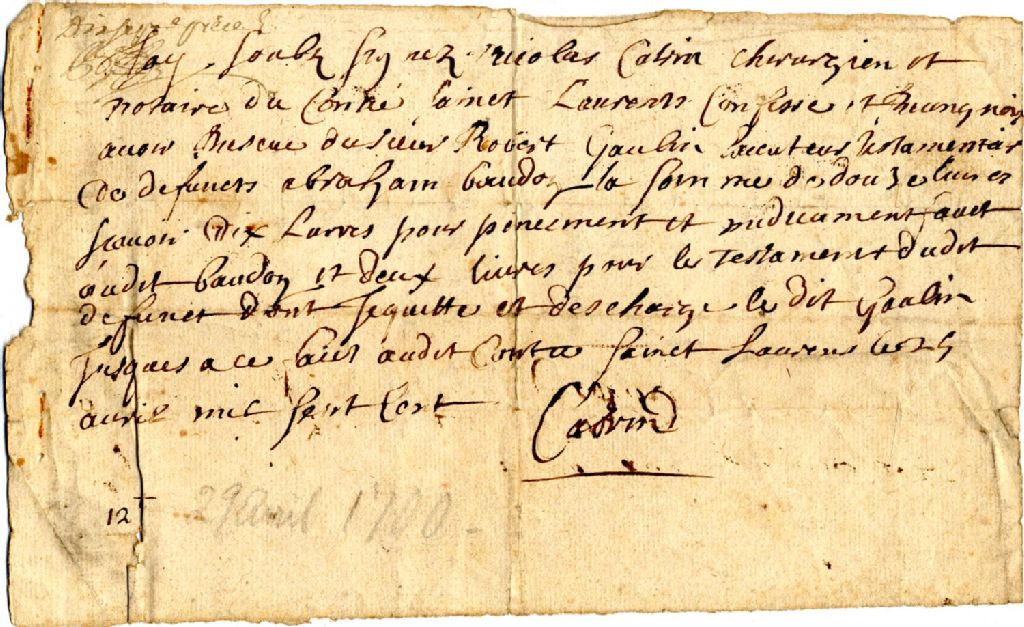 Jay soubz signez nicolas Cabrin chirurgien et
notaire du Comté sainct Laurents Confesse et
avoir Resceue du sieur Robert Gaulin Executeur testamentair
de defuncts abraham baudon la somme de douze livres
scavoir dix Livres pour pencement et medicament faict
audit baudon et deux livres pour le testament dudit
defunct dont je quitte et descharge le dit Gaulin
jusques a ce faict audit Conte sainct Laurens le
avril mil sept Cent
Cabrin
12
29 avril 1700